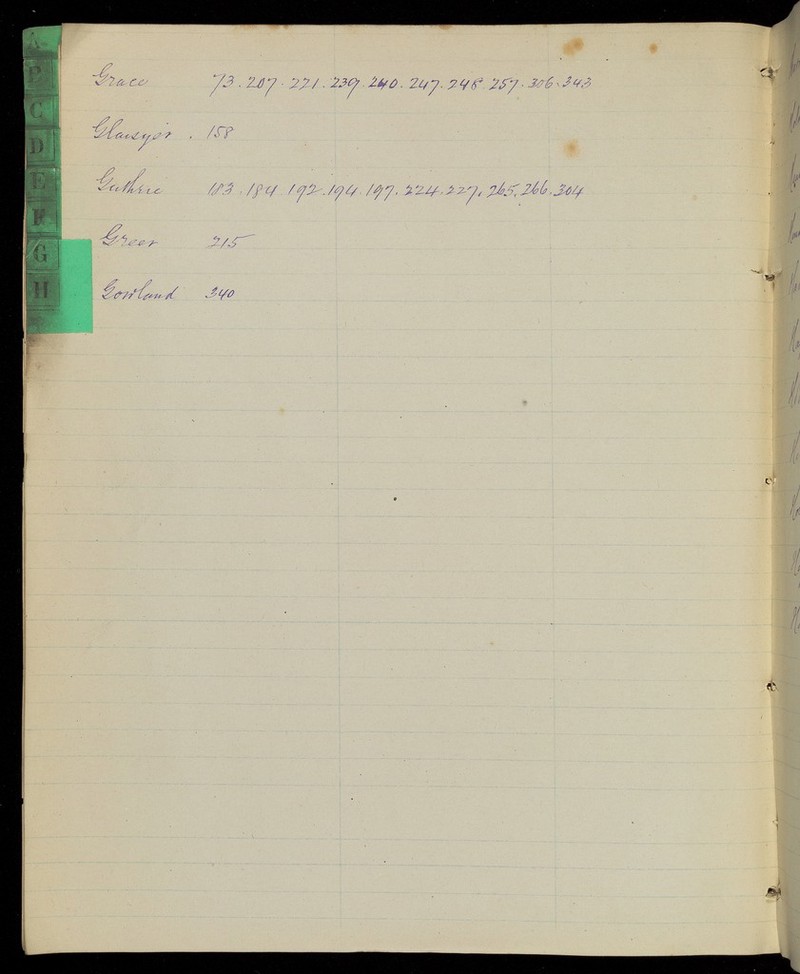 A
B
C
D
E
F
G
H
Grace 73. 207. 221. 239. 240. 247. 248. 257. 306. 343
Glaisyer. 158
Guthrie 183. 184. 192. 194. 197. 224. 227. 265. 266. 304
Greer 215
Gowland 340